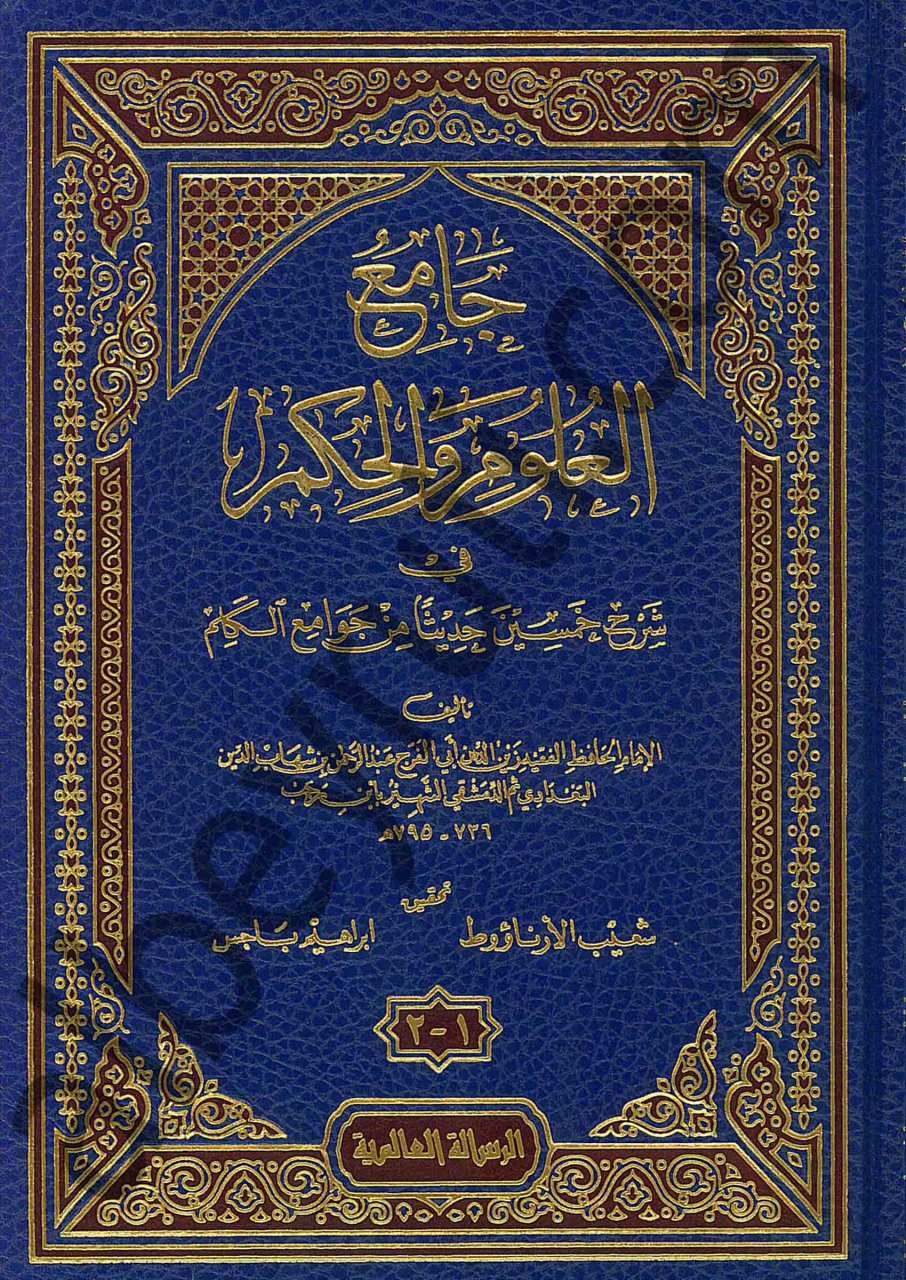 جَامِعُ
العُلُومِ وَالحِكَمِ
في
شَرْحِ خَمْسِينَ حَدِيثًا مِنْ جَوَامِعِ الكَلِمِ
تأليف
الإمام الحافظ الفقيه زين الدين أبي الفرج عبد الرحمن بن شهاب الدين
البغدادي ثم الدمشقي الشهير بابن رجب
٧٣٦ - ٧٩٥ هـ
تحقيق
شعيب الأرناؤوط ابراهيم باجس
١-٢
الرسالة العالمية